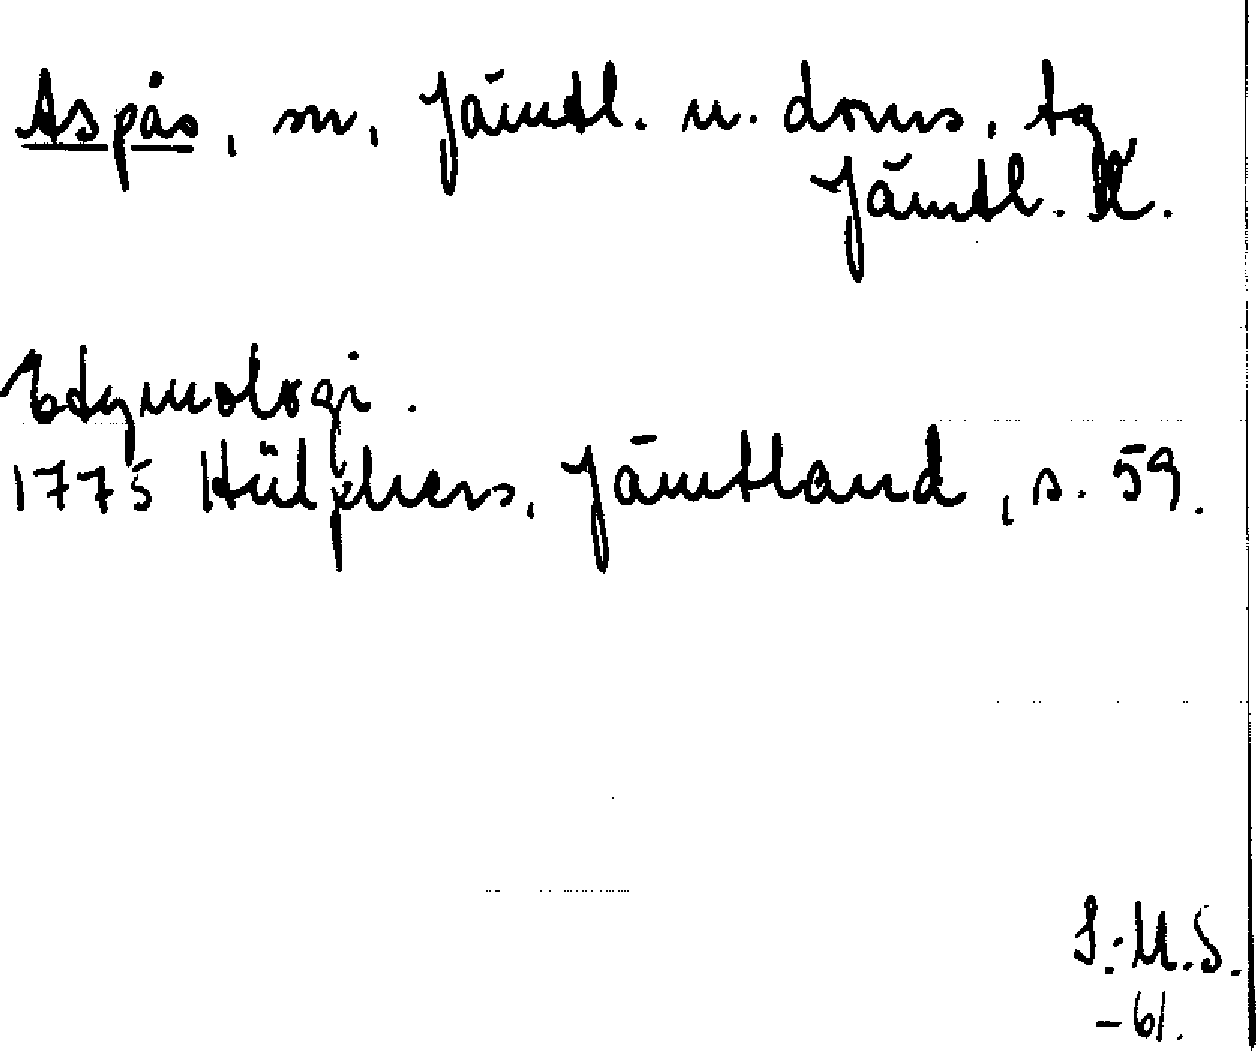 Aspås, sn, Jämtl. n. doms. tg
Jämtl. l.
Etymologi.
1775 Hülphers, Jämtland, s. 59.
S.M.S.
-61.